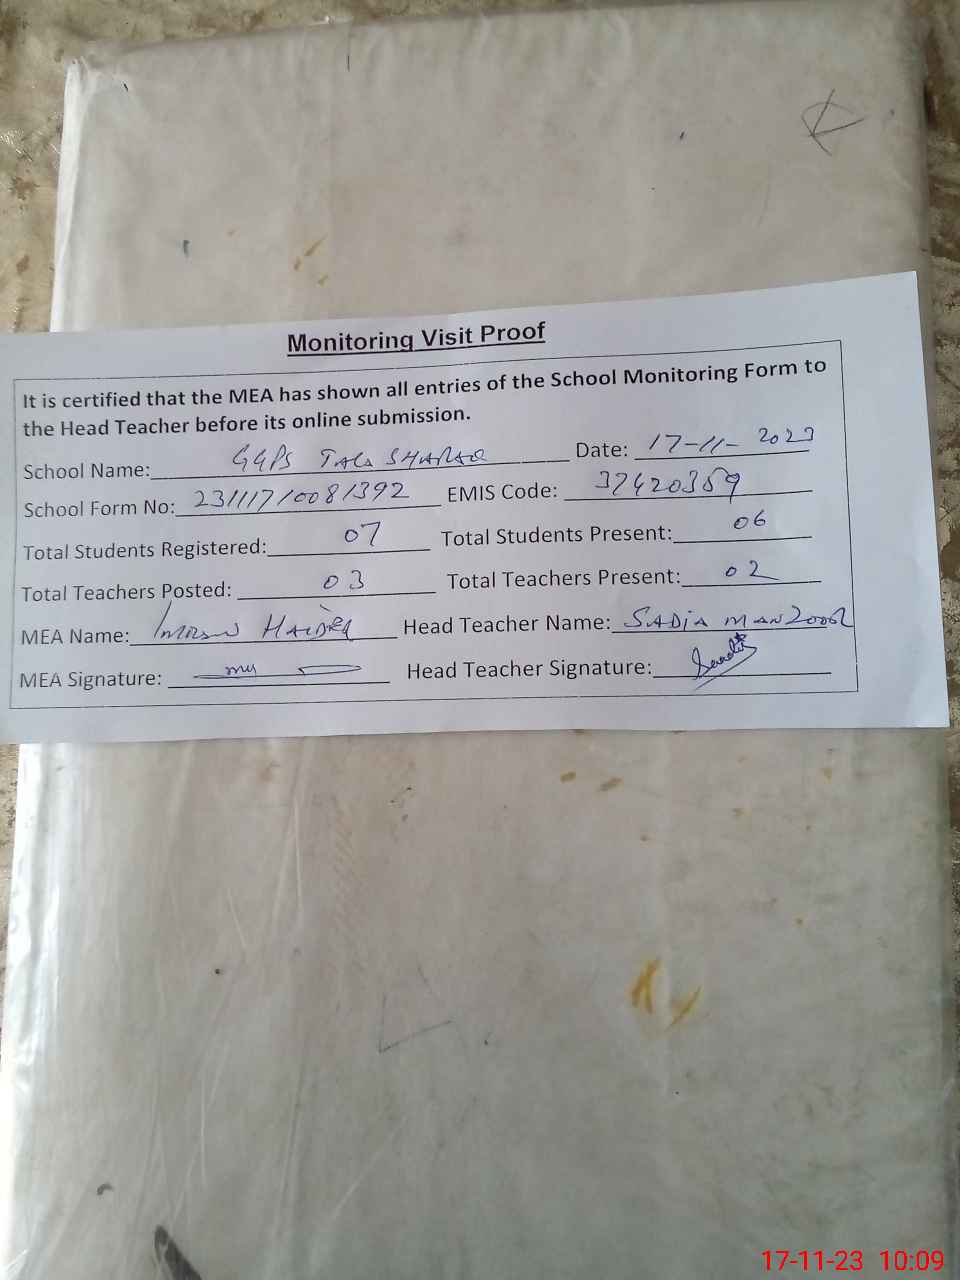 Monitoring Visit Proof
It is certified that the MEA has shown all entries of the School Monitoring Form to
the Head Teacher before its online submission.
School Name: GGPS TALA SHARAQ Date: 17-11-2023
School Form No: 231117/0081392 EMIS Code: 37420359
Total Students Registered: 07 Total Students Present: 06
Total Teachers Posted: 03 Total Teachers Present: 02
MEA Name: Imran HAIDER Head Teacher Name: SADIA MANZOOR
MEA Signature: Head Teacher Signature:
17-11-23 10:09